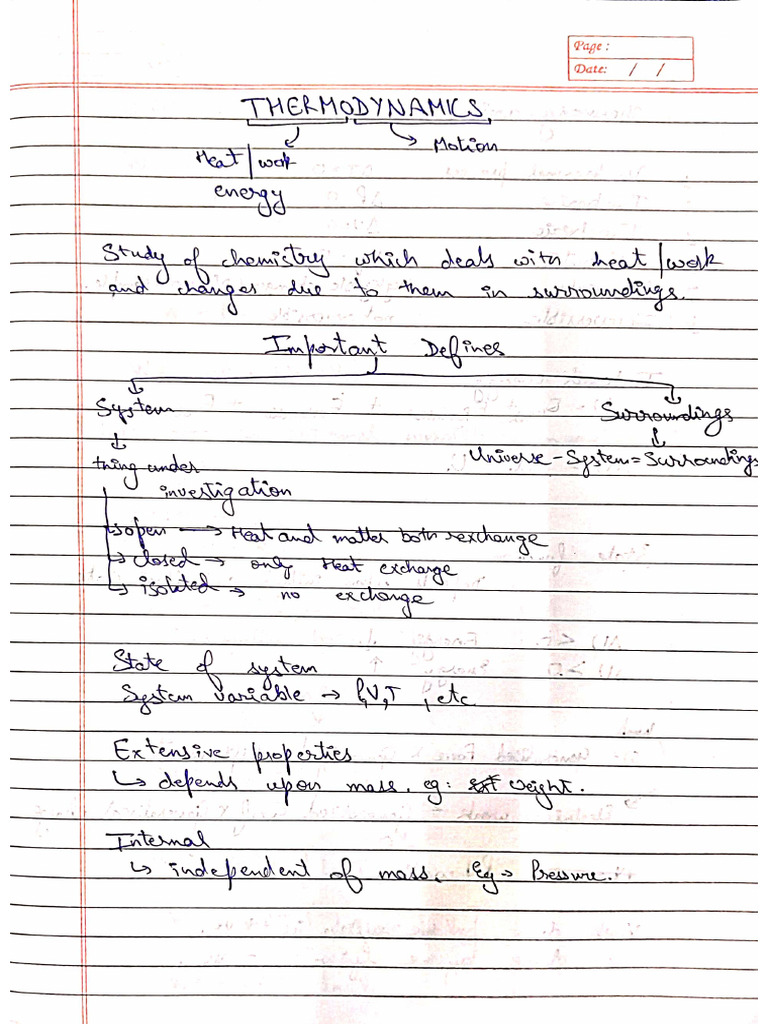 Page :
Date: / /
THERMODYNAMICS
Heat/work → Motion
energy
Study of chemistry which deals with heat/work
and changes due to them in surroundings.
Important Defines
System Surroundings
thing under Universe - System = Surroundings
investigation
open → Heat and matter both exchange
closed → only Heat exchange
isolated → no exchange
State of system
System variable → P,V,T , etc
Extensive properties
↳ depends upon mass. eg: weight.
Internal
↳ independent of mass. Eg → Pressure.